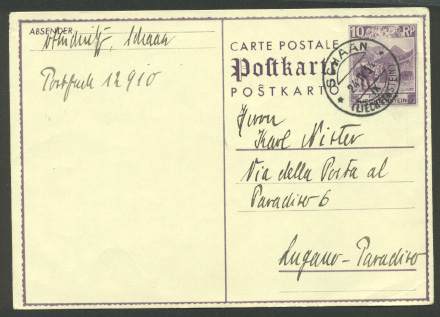 ABSENDER
Schaan
Postfach 12910
CARTE POSTALE
Postkarte
POSTKARTA
10 RP
SCHAAN
(LIECHTENSTEIN)
Herrn
Karl Nister
Via della Posta al
Paradiso 6
Lugano-Paradiso